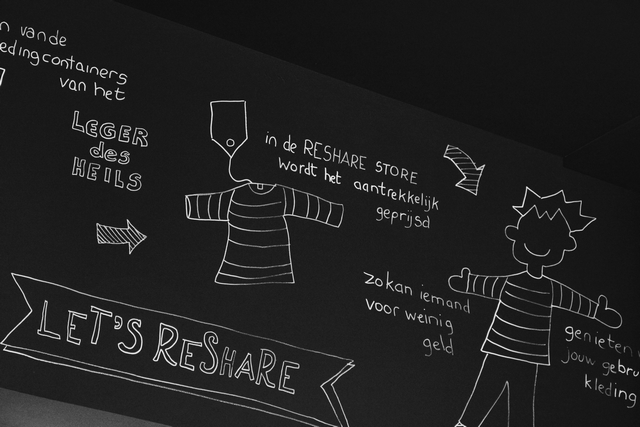 n van de
edingcontainers
van het
LEGER
des
HEILS
in de RESHARE STORE
wordt het aantrekkelijk
geprijsd
zo kan iemand
voor weinig
geld
genieten
jouw gebru
kleding
LET'S RESHARE